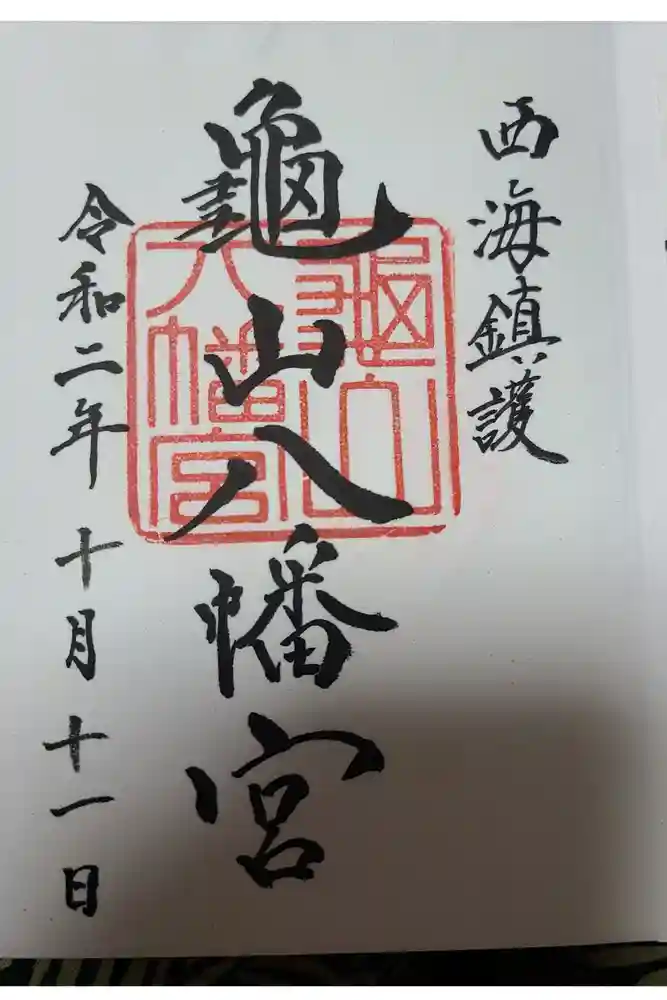 西海鎮護
龜山八幡宮
龜山
八幡宮
令和二年十月十一日